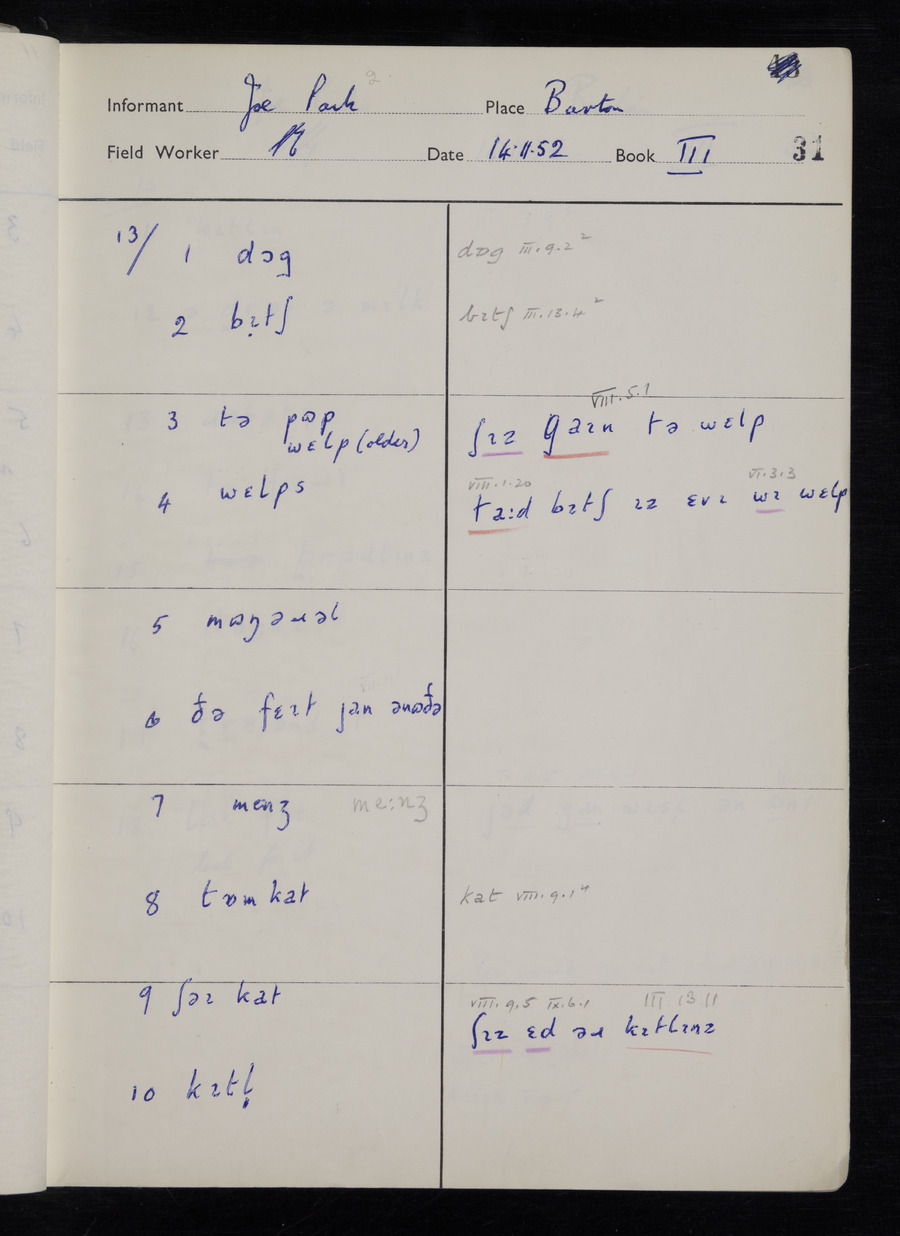 Informant Joe Park Place Barton
Field Worker Date 14.11.52 Book III 31
13/ 1 dɔg
dɒg III.9.2²
2 bɪtʃ
bɪtʃ III.13.4²
3 tə pɷp
wɛlp (older)
VIII.5.1
ʃɪz gaɪn tə wɛlp
4 wɛlps
VIII.1.20 VI.3.3
ta:d bɪtʃ ɪz ɛvɪ wɪ wɛlp
5 mɷŋɡəɹəl
6 ðə fɛɪt jan ənɷðə
7 menʒ me:nʒ
8 tɒmkat
kat VIII.9.1⁴
9 ʃəɪ kat
VIII.9.5 IX.6.1 III 13 11
ʃɪz ɛd əɹ kɪtlɪnz
10 kɪtl̩